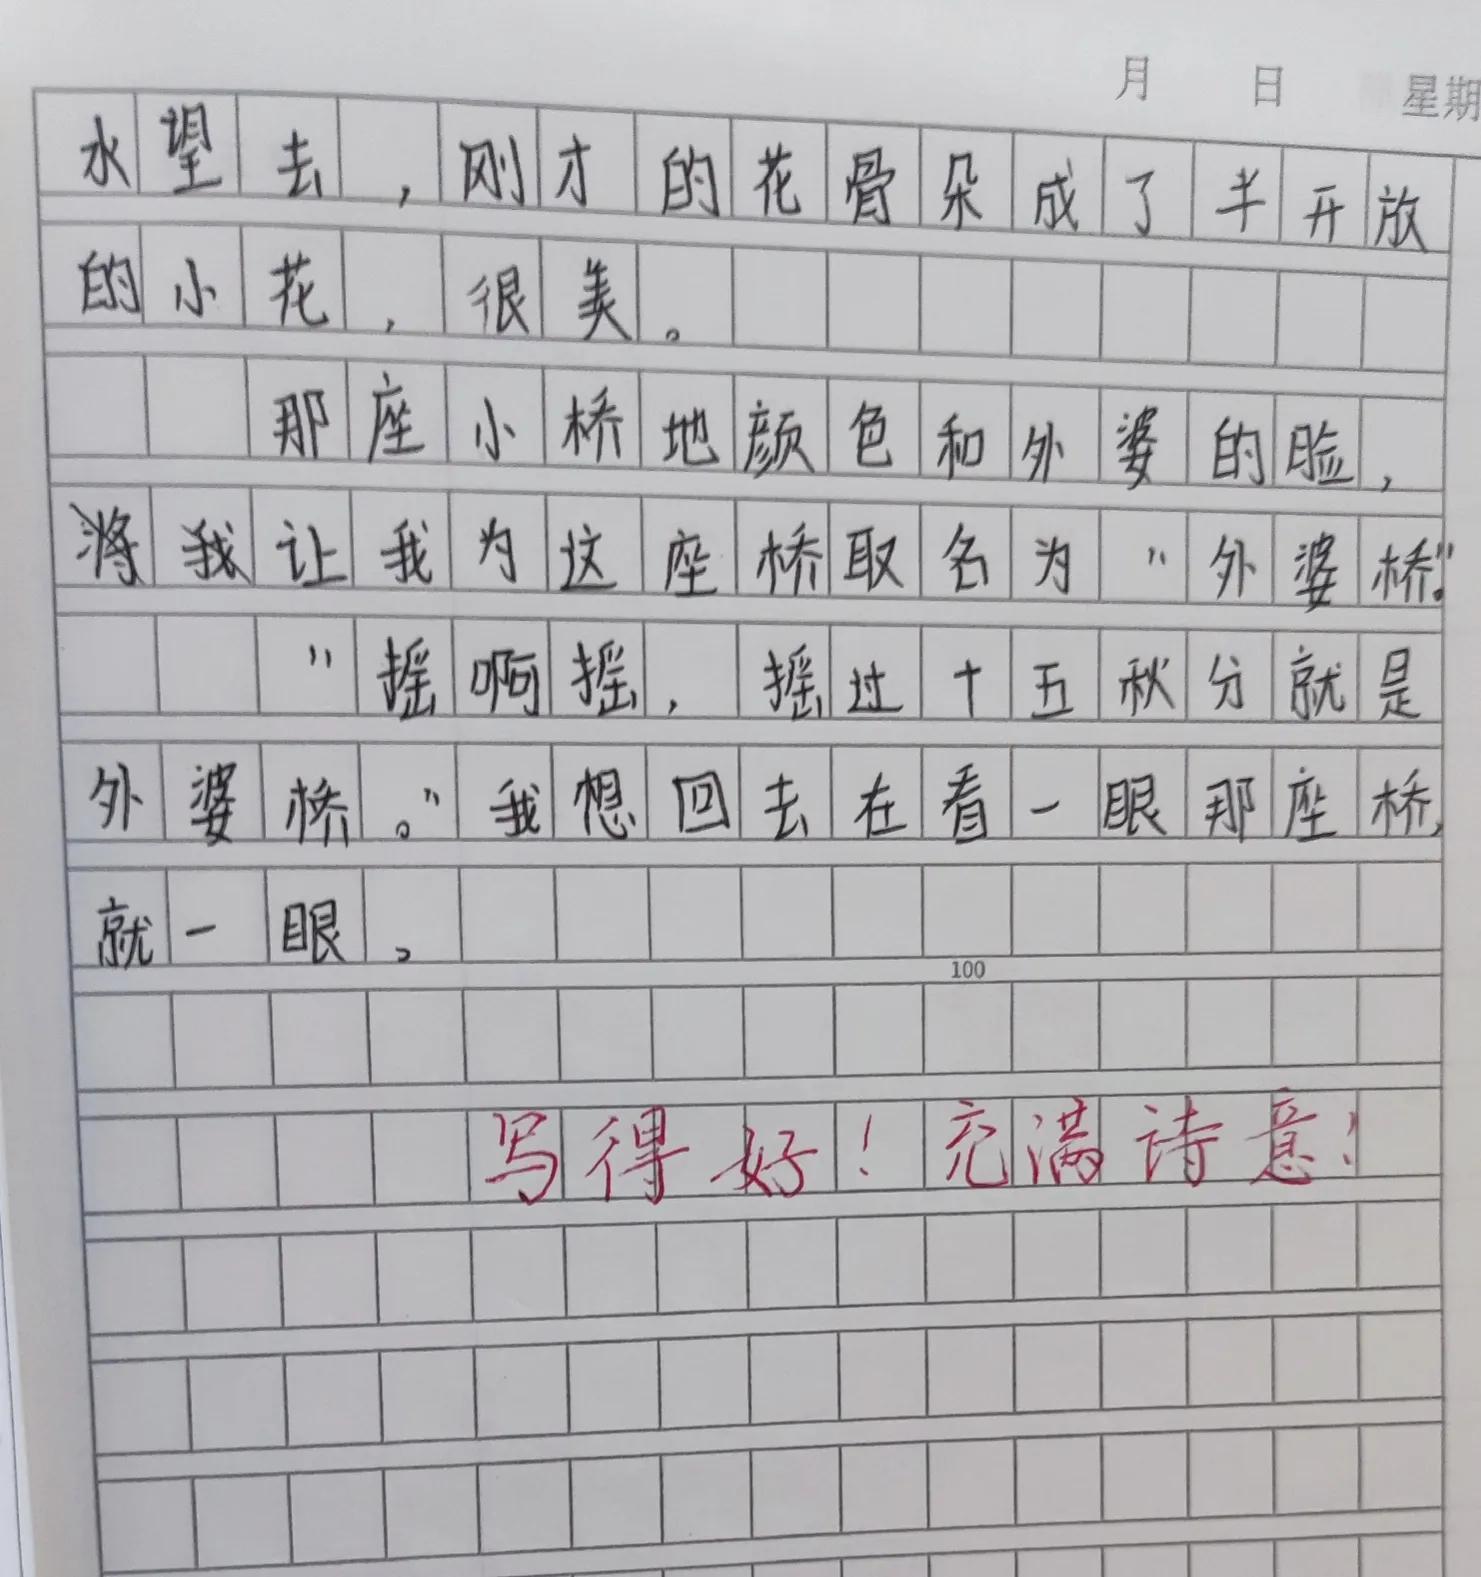 月 日 星期
水望去，刚才的花骨朵成了半开放
的小花，很美。
那座小桥地颜色和外婆的脸，
将我让我为这座桥取名为“外婆桥”。
“摇啊摇，摇过十五秋分就是
外婆桥。”我想回去在看一眼那座桥，
就一眼。
100
写得好！充满诗意！